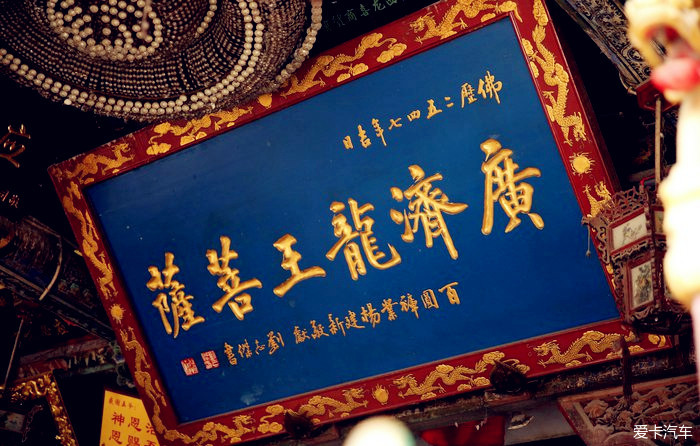 佛曆二五四七年吉日
廣濟龍王菩薩
百圓褲業楊建新敬獻 劉志傑書
神恩
爱卡汽车